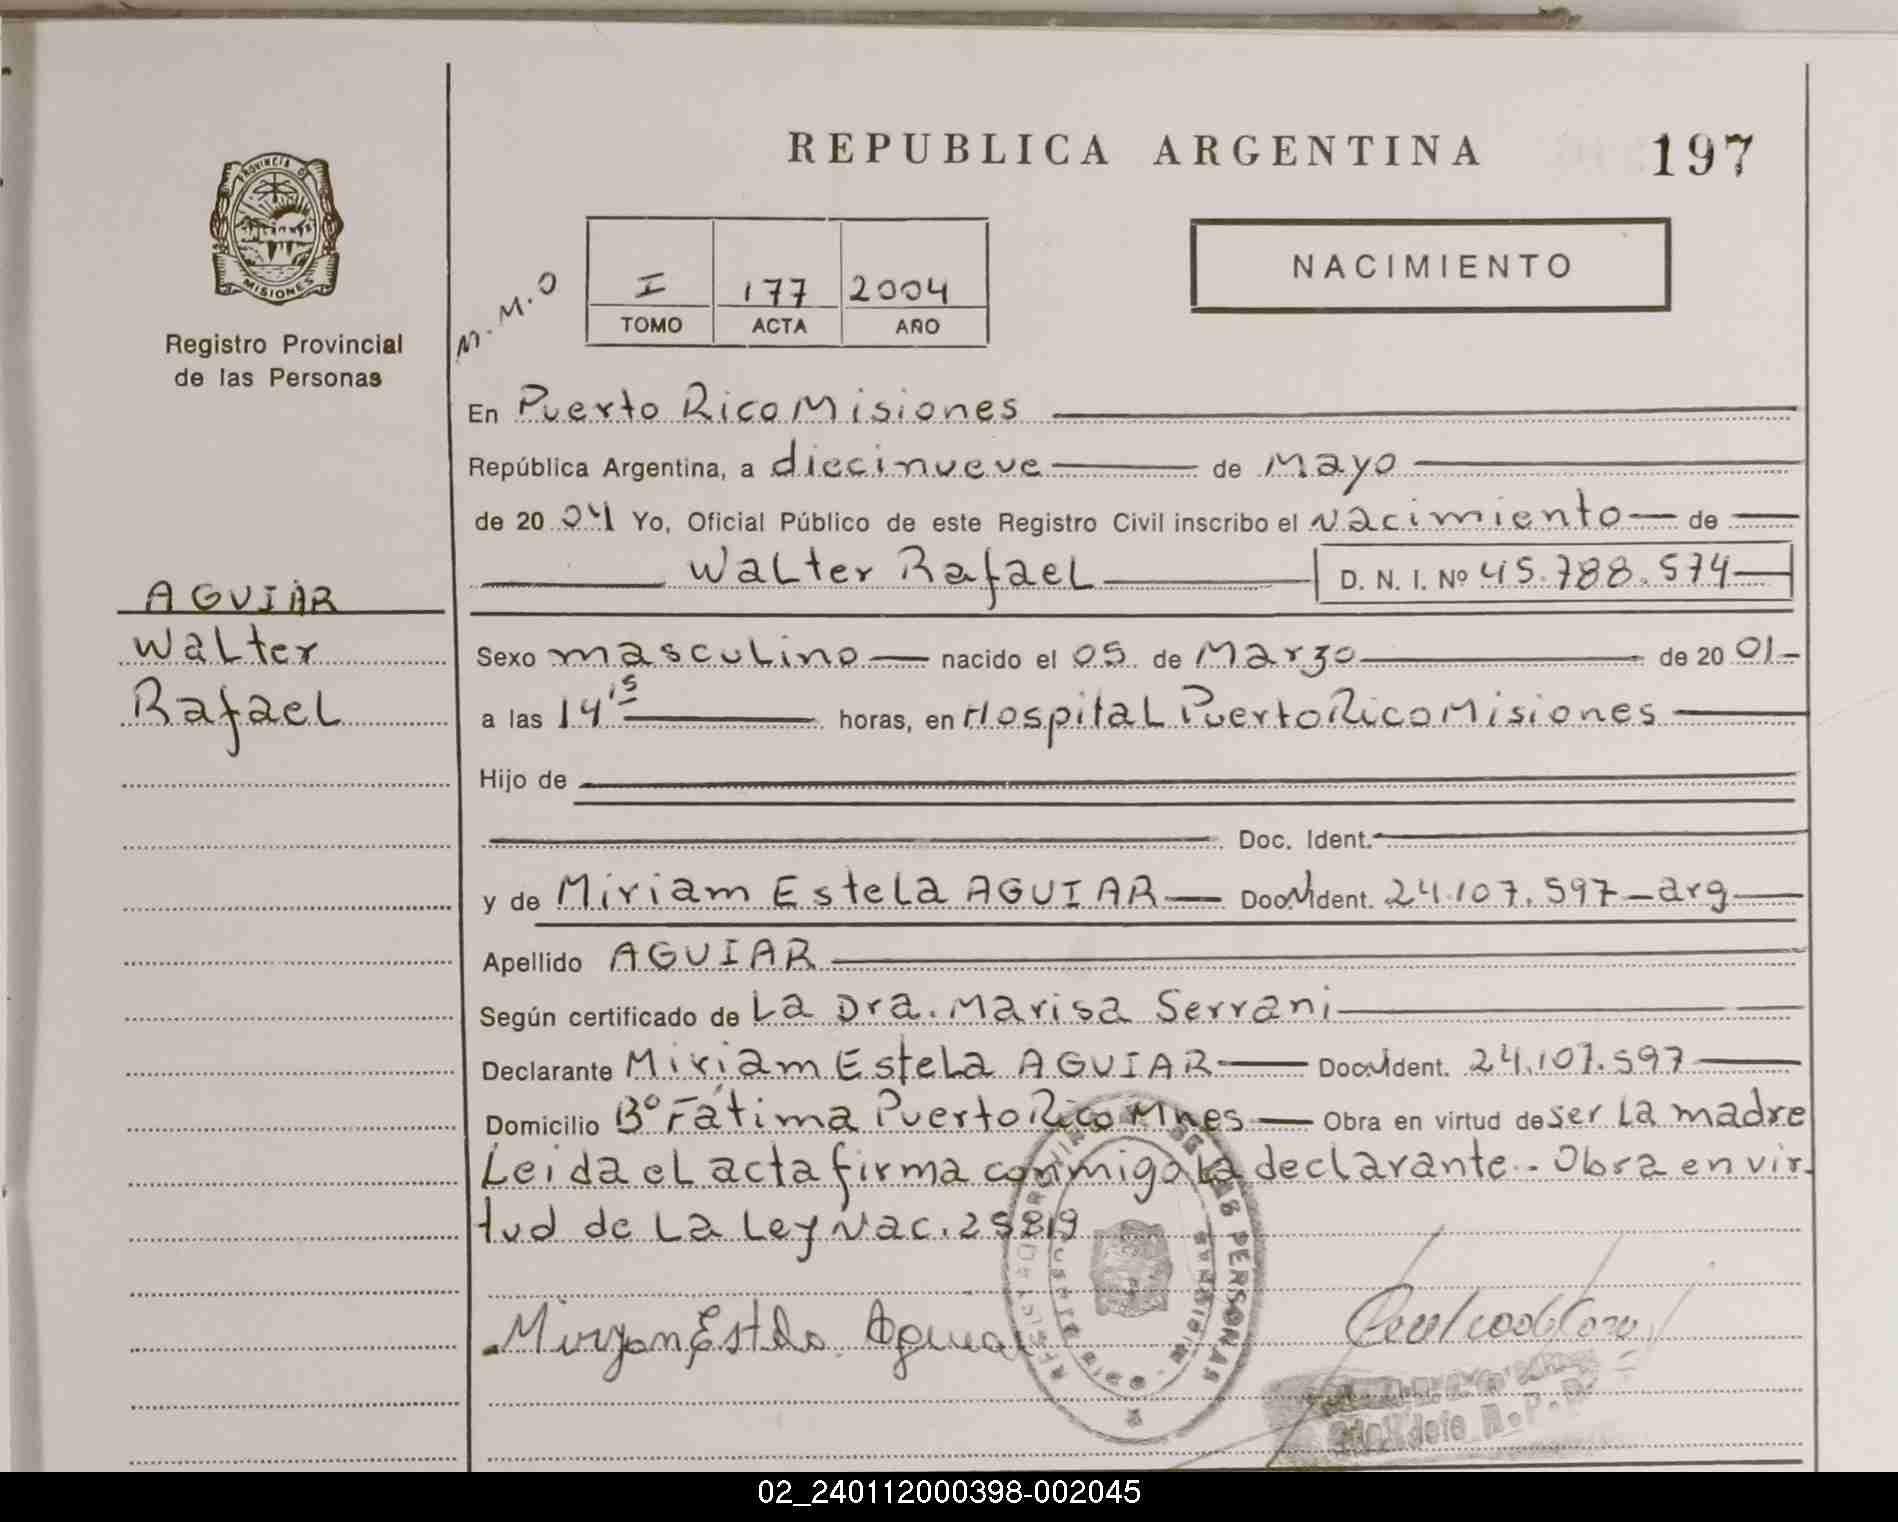 REPUBLICA ARGENTINA 197
PROVINCIA DE
MISIONES
Registro Provincial
de las Personas
M.M.O
I 177 2004
TOMO ACTA AÑO
NACIMIENTO
En Puerto Rico Misiones
República Argentina, a diecinueve de Mayo
de 20 04 Yo, Oficial Público de este Registro Civil inscribo el Nacimiento de
Walter Rafael D. N. I. Nº 45.788.574
AGUIAR
Walter
Rafael
Sexo masculino nacido el 05 de Marzo de 20 01
a las 14 15 horas, en Hospital Puerto Rico Misiones
Hijo de
Doc. Ident.
y de Miriam Estela AGUIAR Doc. Ident. 24.107.597 - arg
Apellido AGUIAR
Según certificado de La Dra. Marisa Serrani
Declarante Miriam Estela AGUIAR Doc. Ident. 24.107.597
Domicilio Bº Fátima Puerto Rico Mnes Obra en virtud de ser La madre
Leida el acta firma conmigo la declarante.- Obra en vir-
tud de La Ley Nac. 25819
Miryan Estela Aguiar
DE LAS PERSONAS
MISIONES
02_240112000398-002045